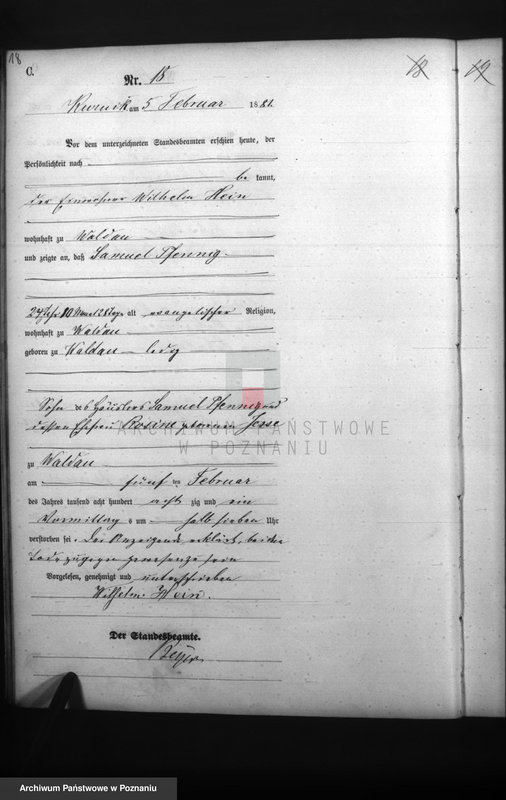 18
C.
Nr. 18
Kurnik am 5 Februar 1881.
Vor dem unterzeichneten Standesbeamten erschien heute, der
Persönlichkeit nach
be kannt,
der Einwohner Wilhelm Hein
wohnhaft zu Waldau
und zeigte an, daß Samuel Pfennig
24 Jahr 10 Monat 28 Tage alt evangelischer Religion,
wohnhaft zu Waldau
geboren zu Waldau ledig
Sohn des Häuslers Samuel Pfennig und
dessen Ehefrau Rosine geborenen Jesse
zu Waldau
am fünf ten Februar
des Jahres tausend acht hundert acht zig und ein
Vormittag s um halb sieben Uhr
verstorben sei. Der Anzeigende erklärt, bei dem
Tode zugegen gewesen zu sein
Vorgelesen, genehmigt und unterschrieben
Wilhelm Hein.
Der Standesbeamte.
18
19
ARCHIWUM PAŃSTWOWE
W POZNANIU
Archiwum Państwowe w Poznaniu